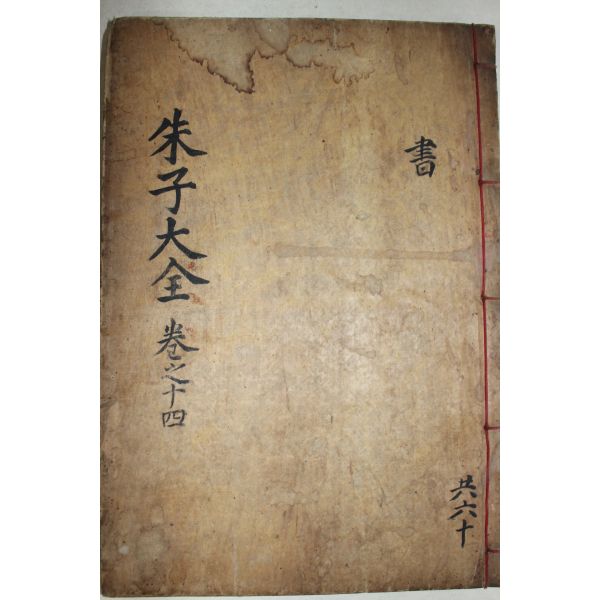 書
朱子大全 卷之十四
共六十